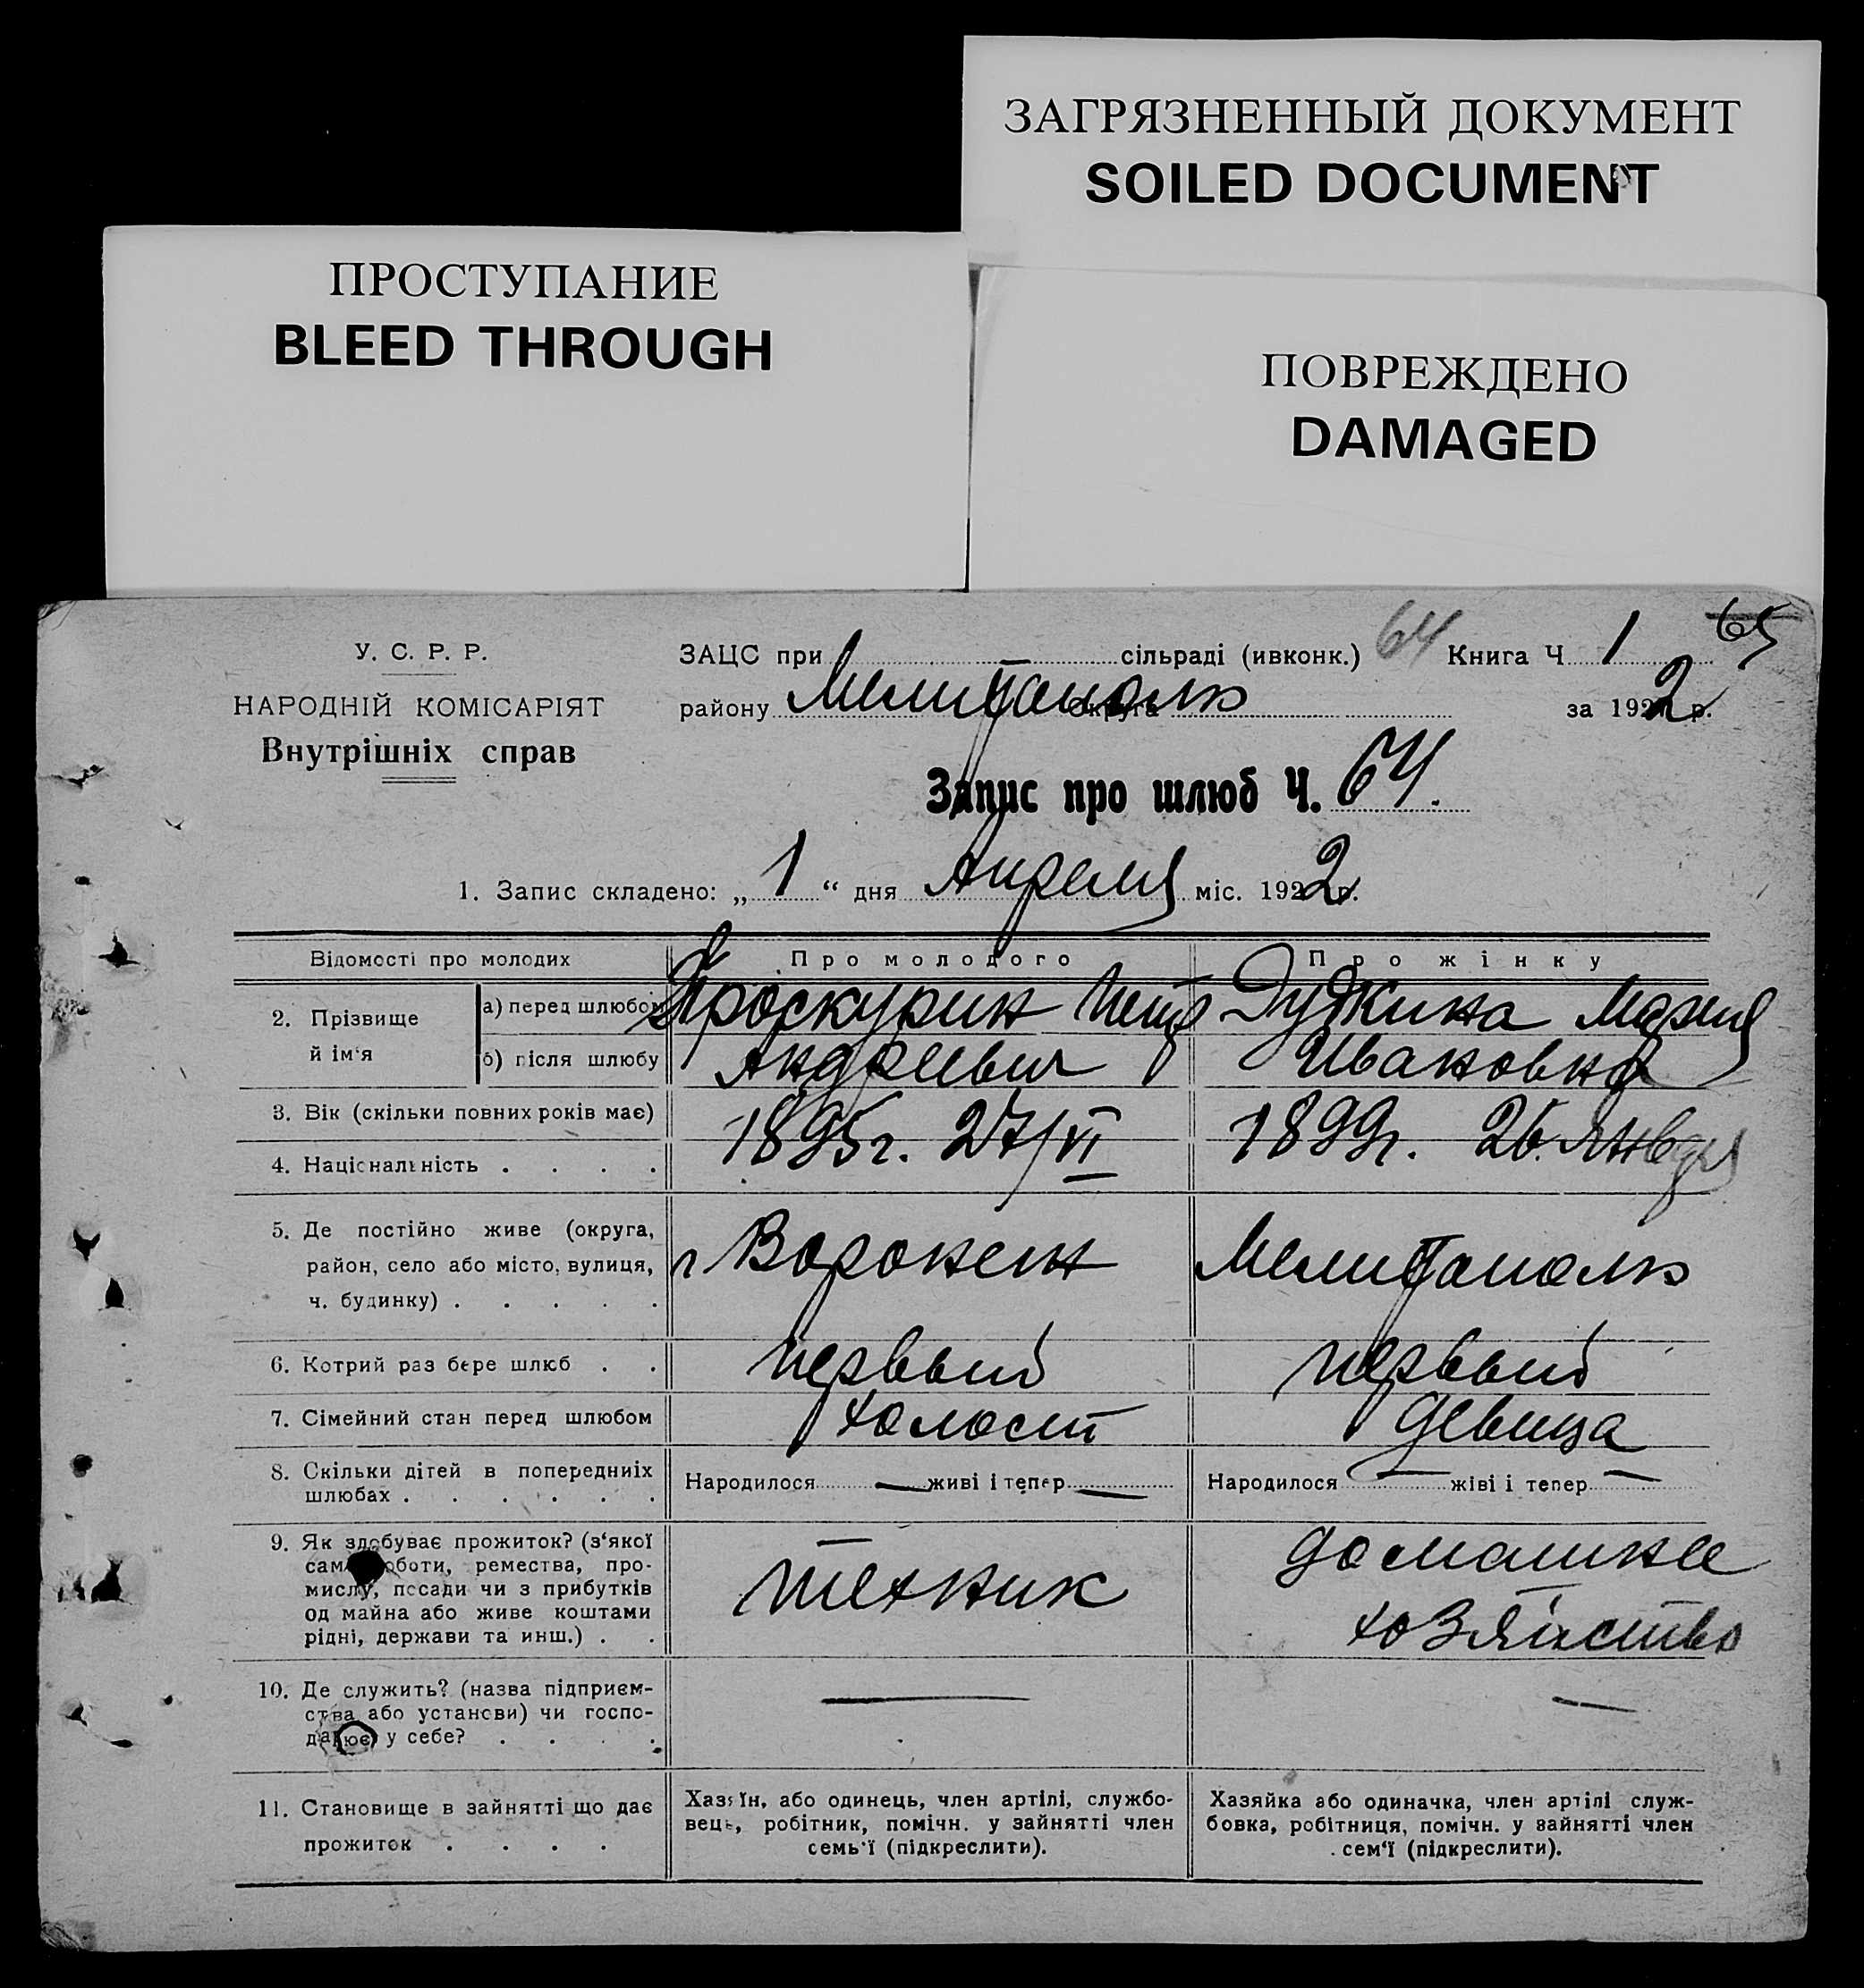 ЗАГРЯЗНЕННЫЙ ДОКУМЕНТ
SOILED DOCUMENT
ПРОСТУПАНИЕ
BLEED THROUGH
ПОВРЕЖДЕНО
DAMAGED
У. С. Р. Р.
НАРОДНІЙ КОМІСАРІЯТ
Внутрішніх справ
ЗАЦС при сільраді (ивконк.) 64 Книга Ч 1 65
району Мелитополь округа за 1922 р.
Запис про шлюб Ч. 64.
1. Запис складено: „ 1 “ дня Апреля міс. 1922 р.
Відомості про молодих Про молодого Про жінку
2. Прізвище й ім‘я
а) перед шлюбом Проскурин Петр Дудкина Мария
б) після шлюбу Андреевич Ивановна
3. Вік (скільки повних років має) 1895 г. 27/VI 1899 г. 26. Января
4. Національність . . . .
5. Де постійно живе (округа,
район, село або місто, вулиця,
ч. будинку) . . . . .
г Воронеж Мелитополь
6. Котрий раз бере шлюб . . первый первый
7. Сімейний стан перед шлюбом холост девица
8. Скільки дітей в попередниіх
шлюбах . . . . . .
Народилося — живі і тепер — Народилося — жіві і тепер —
9. Як здобуває прожиток? (з‘якої
саме роботи, ремества, про-
мислу, посади чи з прибутків
од майна або живе коштами
рідні, держави та инш.) . .
техник домашнее
хозяйство
10. Де служить? (назва підприєм-
ства або установи) чи госпо-
дарює у себе? . . . .
— —
11. Становище в зайнятті що дає
прожиток . . . .
Хазяїн, або одинець, член артілі, службо-
вець, робітник, помічн. у зайнятті член
семь‘ї (підкреслити).
Хазяйка або одиначка, член артілі служ-
бовка, робітниця, помічн. у зайнятті член
сем‘ї (підкреслити).